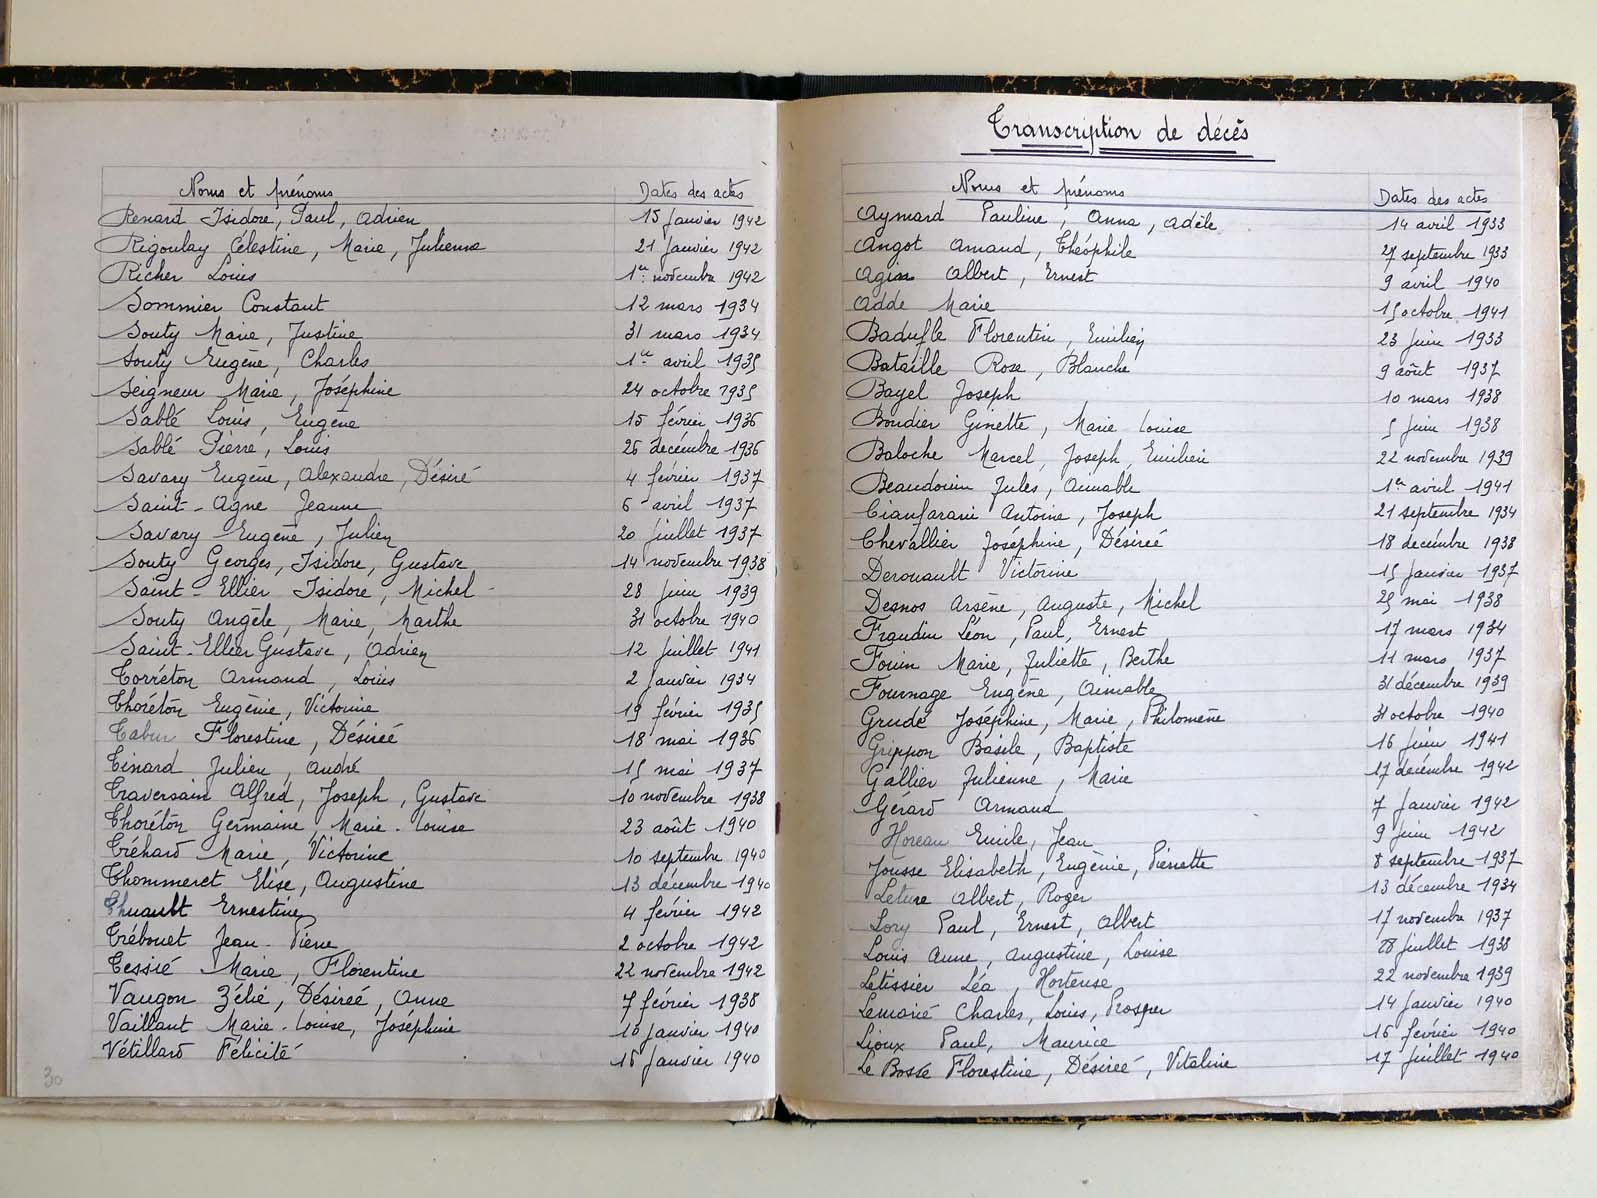 Noms et prénoms Dates des actes
Renard Isidore, Paul, Adrien 15 Janvier 1942
Rigoulay Célestine, Marie, Julienne 21 Janvier 1942
Richer Louis 1er novembre 1942
Sommier Constant 12 mars 1934
Souty Marie, Justine 31 mars 1934
Souty Eugène, Charles 1er avril 1935
Seigneur Marie, Joséphine 24 octobre 1935
Sablé Louis, Eugène 15 février 1936
Sablé Pierre, Louis 26 decémbre 1936
Savary Eugène, Alexandre, Désiré 4 février 1937
Saint-Agne Jeanne 6 avril 1937
Savary Eugène, Julien 20 juillet 1937
Souty Georges, Isidore, Gustave 14 novembre 1938
Saint-Ellier Isidore, Michel 28 Juin 1939
Souty Angèle, Marie, Marthe 31 octobre 1940
Saint-Ellier Gustave, Adrien 12 juillet 1941
Torréton Armand, Louis 2 Janvier 1934
Thoréton Eugènie, Victorine 19 février 1935
Tabur Florestine, Désireé 18 mai 1936
Tinard Julien, André 15 mai 1937
Traversain Alfred, Joseph, Gustave 10 novembre 1938
Thoréton Germaine, Marie-Louise 23 août 1940
Tréhard Marie, Victorine 10 septembre 1940
Thommeret Elise, Augustine 13 décembre 1940
Thuault Ernestine 4 février 1942
Trébouet Jean-Pierre 2 octobre 1942
Tessié Marie, Florentine 22 novembre 1942
Vaugon Zélie, Désireé, Anne 7 février 1938
Vaillant Marie-Louise, Joséphine 10 Janvier 1940
Vétillard Félicité 16 Janvier 1940
30
Transcription de décès
Noms et prénoms Dates des actes
Aymard Pauline, Anna, Adèle 14 avril 1933
Angot Amand, Théophile 27 septembre 1933
Albert, Ernest 9 avril 1940
Adde Marie 15 octobre 1941
Badufle Florentin, Emilien 23 Juin 1933
Bataille Rose, Blanche 9 août 1937
Bayel Joseph 10 mars 1938
Boudier Ginette, Marie-Louise 5 Juin 1938
Baloche Marcel, Joseph, Emilien 22 novembre 1939
Beaudouin Jules, Aimable 1er avril 1941
Cianfarani Antoine, Joseph 21 septembre 1934
Chevallier Joséphine, Désireé 18 decémbre 1938
Derouault Victorine 15 Janvier 1937
Desnos Arsène, Auguste, Michel 25 mai 1938
Fraudin Léon, Paul, Ernest 17 mars 1934
Fouin Marie, Juliette, Berthe 11 mars 1937
Fournage Eugène, Aimable 31 décembre 1939
Grudé Joséphine, Marie, Philomène 31 octobre 1940
Grippon Basile, Baptiste 16 Juin 1941
Gallier Julienne, Marie 17 decémbre 1942
Gérard Armand 7 Janvier 1942
Horeau Emile, Jean 9 Juin 1942
Jousse Elisabeth, Eugènie, Pierrette 8 septembre 1937
Albert, Roger 13 décembre 1934
Lory Paul, Ernest, Albert 17 novembre 1937
Louis Anne, Augustine, Louise 28 juillet 1938
Letissier Léa, Hortense 22 novembre 1939
Lemarié Charles, Louis, Prosper 14 Janvier 1940
Lioux Paul, Maurice 16 février 1940
Le Bossé Florestine, Désireé, Vitaline 17 juillet 1940